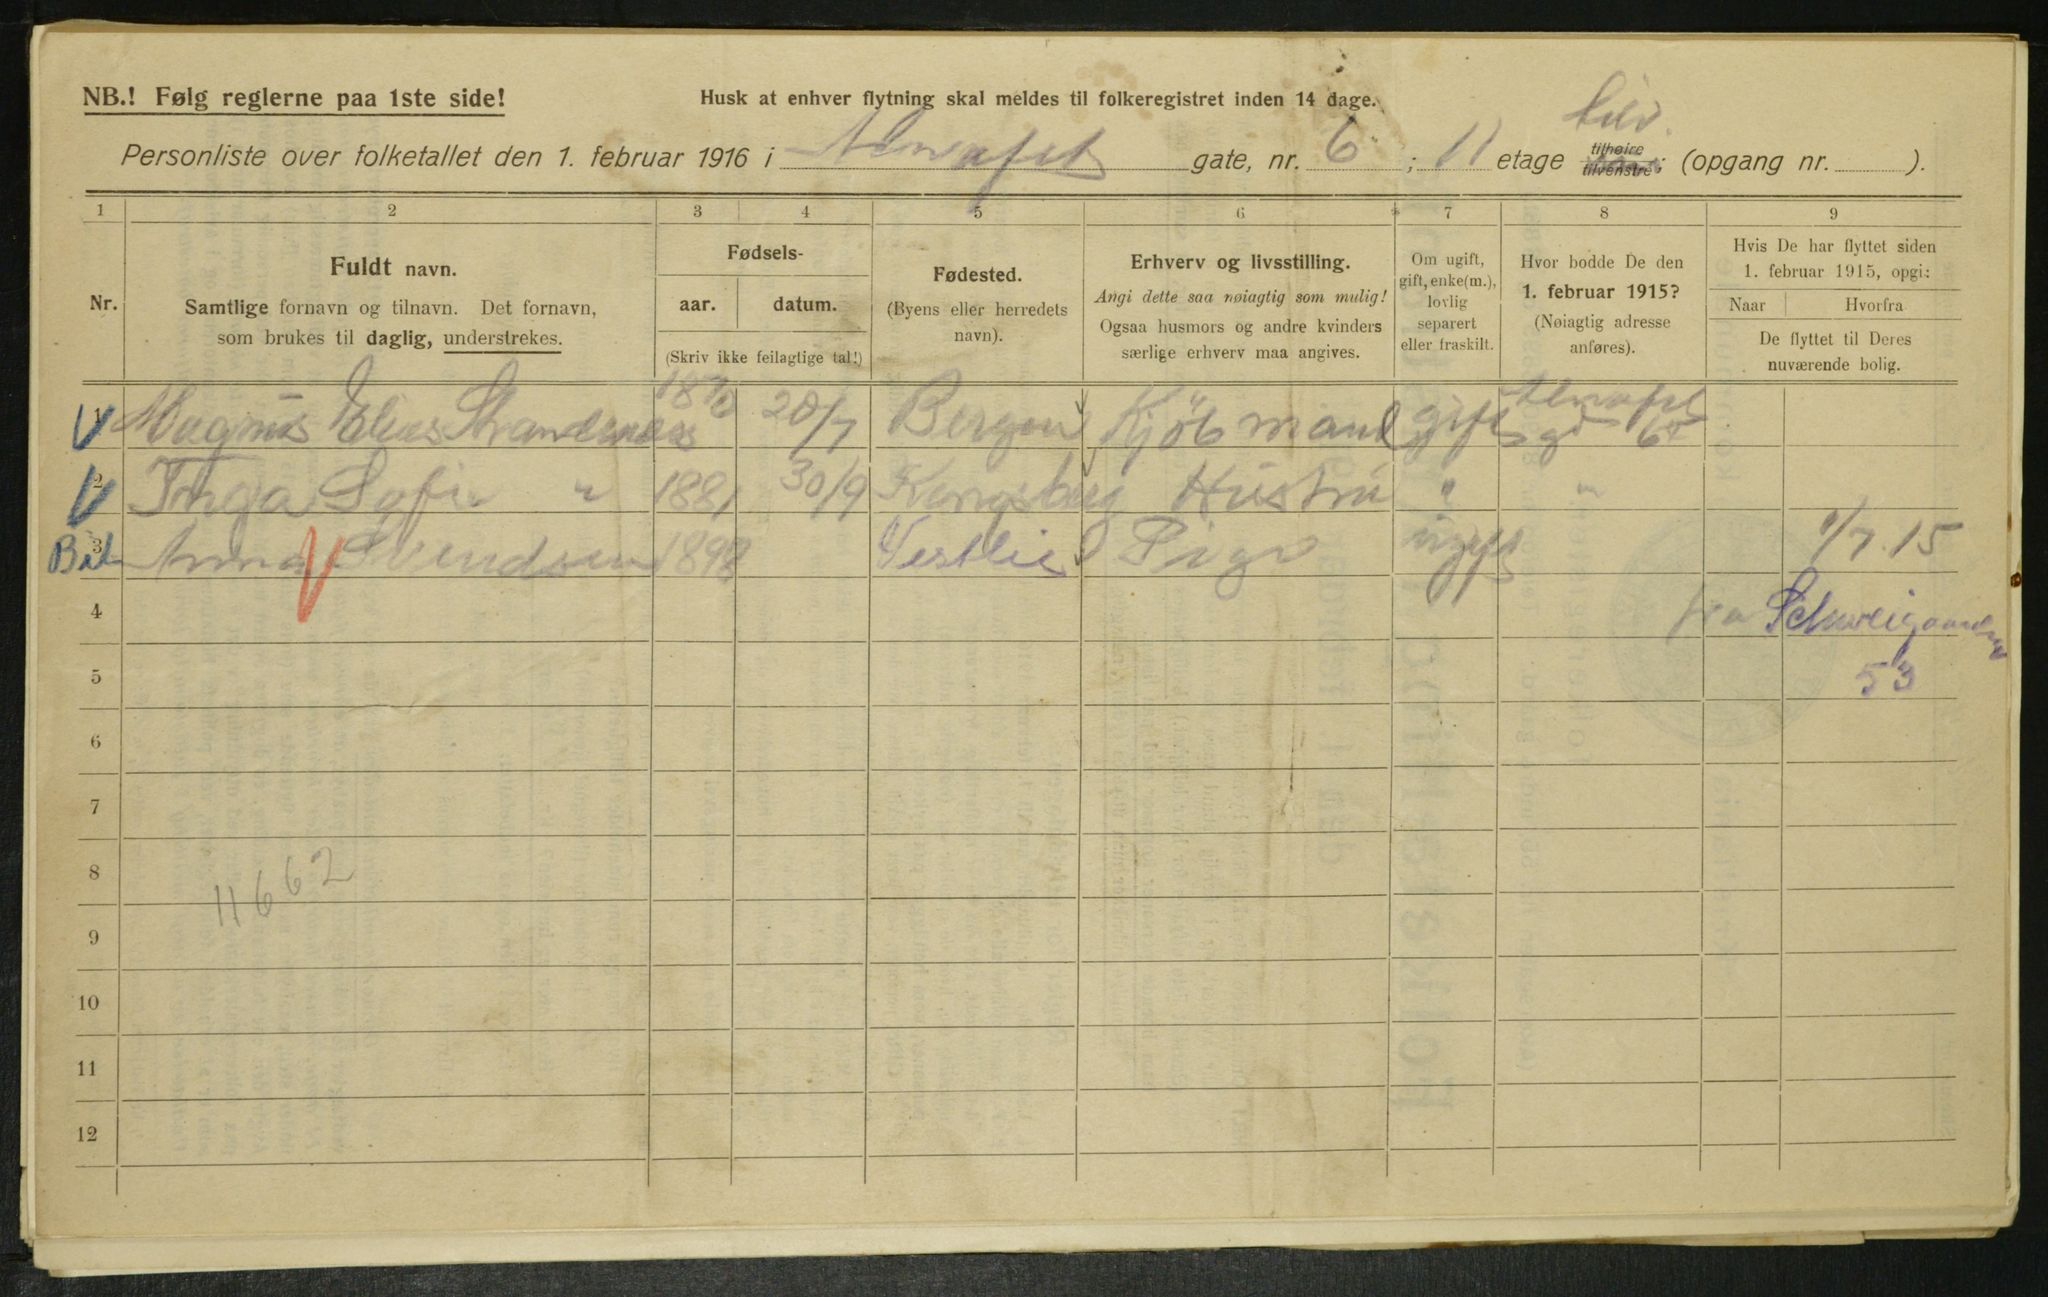 NB.! Følg reglerne paa 1ste side!
Husk at enhver flytning skal meldes til folkeregistret inden 14 dage.
Personliste over folketallet den 1. februar 1916 i gate, nr. 6; 11 etage tilhøire tilvenstre; (opgang nr. ).
1 2 3 4 5 6 7 8 9
Nr.
Fuldt navn.
Samtlige fornavn og tilnavn. Det fornavn,
som brukes til daglig, understrekes.
Fødsels-
aar. datum.
(Skriv ikke feilagtige tal!)
Fødested.
(Byens eller herredets
navn).
Erhverv og livsstilling.
Angi dette saa nøiagtig som mulig!
Ogsaa husmors og andre kvinders
særlige erhverv maa angives.
Om ugift,
gift, enke(m.),
lovlig
separert
eller fraskilt.
Hvor bodde De den
1. februar 1915?
(Nøiagtig adresse
anføres).
Hvis De har flyttet siden
1. februar 1915, opgi:
Naar Hvorfra
De flyttet til Deres
nuværende bolig.
1 Magnus Elias 20/7 Bergen Kjöbmand gift gd 6
2 Inga Sofie " 1881 30/9 Kongsberg Hustru " "
3 Anna Svendsen 1898 Vestlie Pige ugift 1/7.15
4 fra Schweigaardsg
5 53
6
7
8
11662
9
10
11
12